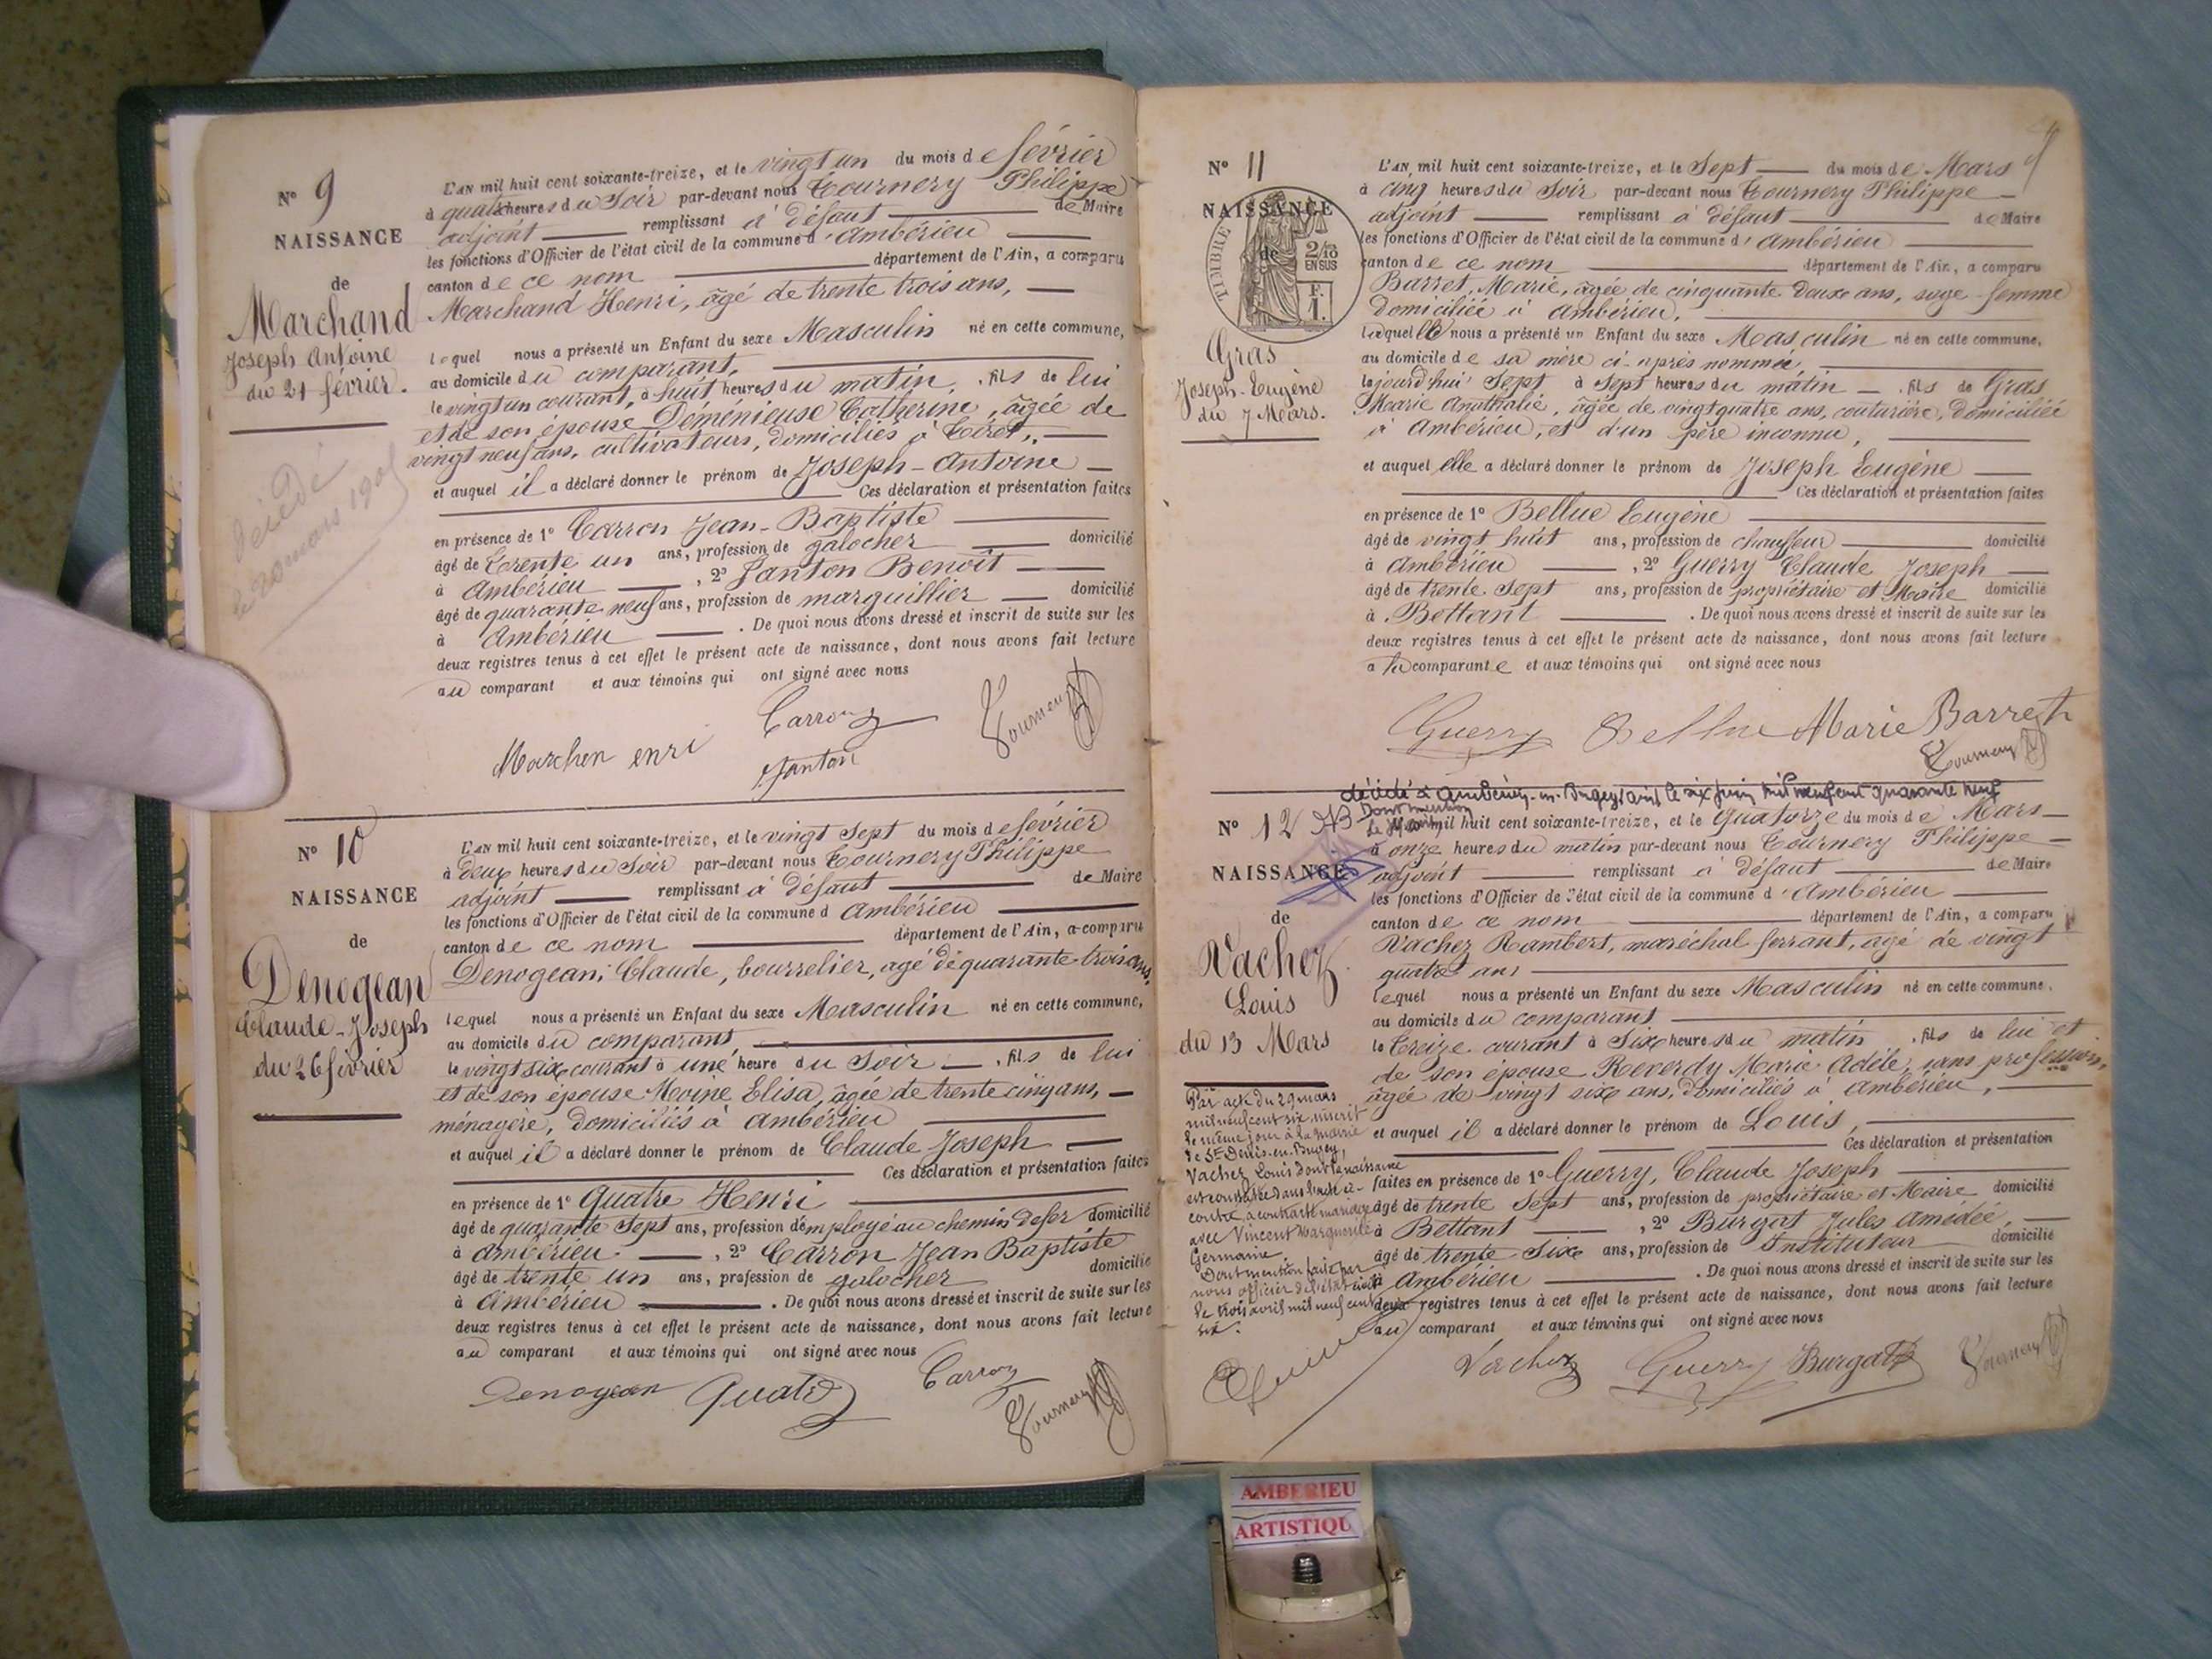 N° 9
NAISSANCE
de
Marchand
Joseph Antoine
du 21 février.
décédé
L'AN mil huit cent soixante-treize, et le vingt un du mois de février
à quatre heures du Soir par-devant nous Tournery Philippe
adjoint remplissant à défaut de Maire
les fonctions d'Officier de l'état civil de la commune d'Ambérieu
canton de ce nom département de l'Ain, a comparu
Marchand Henri, âgé de trente trois ans,
lequel nous a présenté un Enfant du sexe Masculin né en cette commune,
au domicile du comparant,
le vingt un courant, à huit heures du matin, fils de lui
et de son épouse Deménieuse Catherine, âgée de
vingt neuf ans, cultivateurs, domiciliés à Tiret,
et auquel il a déclaré donner le prénom de Joseph-Antoine
Ces déclaration et présentation faites
en présence de 1° Carron Jean-Baptiste
âgé de trente un ans, profession de galocher domicilié
à Ambérieu, 2° Janton Benoît
âgé de quarante neuf ans, profession de marguillier domicilié
à Ambérieu. De quoi nous avons dressé et inscrit de suite sur les
deux registres tenus à cet effet le présent acte de naissance, dont nous avons fait lecture
au comparant et aux témoins qui ont signé avec nous
Marchen enri Carron Janton Tournery
N° 10
NAISSANCE
de
Denogean
Claude-Joseph
du 26 février
L'AN mil huit cent soixante-treize, et le vingt sept du mois de février
à deux heures du Soir par-devant nous Tournery Philippe
adjoint remplissant à défaut de Maire
les fonctions d'Officier de l'état civil de la commune d Ambérieu
canton de ce nom département de l'Ain, a comparu
Denogean, Claude, bourrelier, agé de quarante trois ans,
lequel nous a présenté un Enfant du sexe Masculin né en cette commune,
au domicile du comparant,
le vingt six courant à une heure du Soir, fils de lui
et de son épouse Moine Elisa, âgée de trente cinq ans,
ménagère, domiciliés à Ambérieu
et auquel il a déclaré donner le prénom de Claude Joseph
Ces déclaration et présentation faites
en présence de 1° Quatre Henri
âgé de quarante sept ans, profession d'employé au chemin de fer domicilié
à Ambérieu, 2° Carron Jean Baptiste
âgé de trente un ans, profession de galocher domicilié
à Ambérieu. De quoi nous avons dressé et inscrit de suite sur les
deux registres tenus à cet effet le présent acte de naissance, dont nous avons fait lecture
au comparant et aux témoins qui ont signé avec nous
Denogean Quatre Carron Tournery
N° 11
NAISSANCE
de
TIMBRE
2/10
EN SUS
F.
1.
Gras
Joseph-Eugène
du 7 Mars.
L'AN mil huit cent soixante-treize, et le Sept du mois de Mars
à cinq heures du Soir par-devant nous Tournery Philippe
adjoint remplissant à défaut de Maire
les fonctions d'Officier de l'état civil de la commune d'Ambérieu
canton de ce nom département de l'Ain, a comparu
Barret, Marie, agée de cinquante deux ans, sage-femme
domiciliée à Ambérieu,
laquelle nous a présenté un Enfant du sexe Masculin né en cette commune,
au domicile de sa mère ci-après nommée,
le jourd'hui Sept à sept heures du matin, fils de Gras
Marie Anathalie, âgée de vingt quatre ans, couturière, domiciliée
à Ambérieu, et d'un père inconnu,
et auquel elle a déclaré donner le prénom de Joseph Eugène
Ces déclaration et présentation faites
en présence de 1° Bellue Eugène
âgé de vingt huit ans, profession de chauffeur domicilié
à Ambérieu, 2° Guerry Claude Joseph
âgé de trente sept ans, profession de propriétaire et Maire domicilié
à Bettant. De quoi nous avons dressé et inscrit de suite sur les
deux registres tenus à cet effet le présent acte de naissance, dont nous avons fait lecture
a la comparante et aux témoins qui ont signé avec nous
Guerry Bellue Marie Barret
Tournery
décédé à Ambérieu-en-Bugey, Ain, le six juin mil neuf cent quarante neuf
Dont mention
N° 12
NAISSANCE
de
Vachez
Louis
du 13 Mars
Par acte du 29 mars
mil neuf cent six, inscrit
le même jour à la mairie
de St Denis-en-Bugey,
Vachez Louis dont la naissance
est constatée dans l'acte ci-
contre, a contracté mariage
avec Vincent Marguerite
Germaine.
Dont mention faite par
nous officier de l'état civil
le trois avril mil neuf cent
six.
L'AN mil huit cent soixante-treize, et le Quatorze du mois de Mars
à onze heures du matin par-devant nous Tournery Philippe
adjoint remplissant à défaut de Maire
les fonctions d'Officier de l'état civil de la commune d'Ambérieu
canton de ce nom département de l'Ain, a comparu
Vachez Rambert, maréchal ferrant, agé de vingt
quatre ans
lequel nous a présenté un Enfant du sexe Masculin né en cette commune,
au domicile du comparant
le treize courant à Six heures du matin, fils de lui et
de son épouse Reverdy Marie Adèle, sans profession,
âgée de vingt six ans, domiciliés à Ambérieu,
et auquel il a déclaré donner le prénom de Louis,
Ces déclaration et présentation
faites en présence de 1° Guerry, Claude Joseph
âgé de trente Sept ans, profession de propriétaire et Maire domicilié
à Bettant, 2° Burgat Jules Amédée,
âgé de trente Six ans, profession de Instituteur domicilié
à Ambérieu. De quoi nous avons dressé et inscrit de suite sur les
deux registres tenus à cet effet le présent acte de naissance, dont nous avons fait lecture
au comparant et aux témoins qui ont signé avec nous
Vachez Guerry Burgat Tournery
AMBERIEU
ARTISTIQU